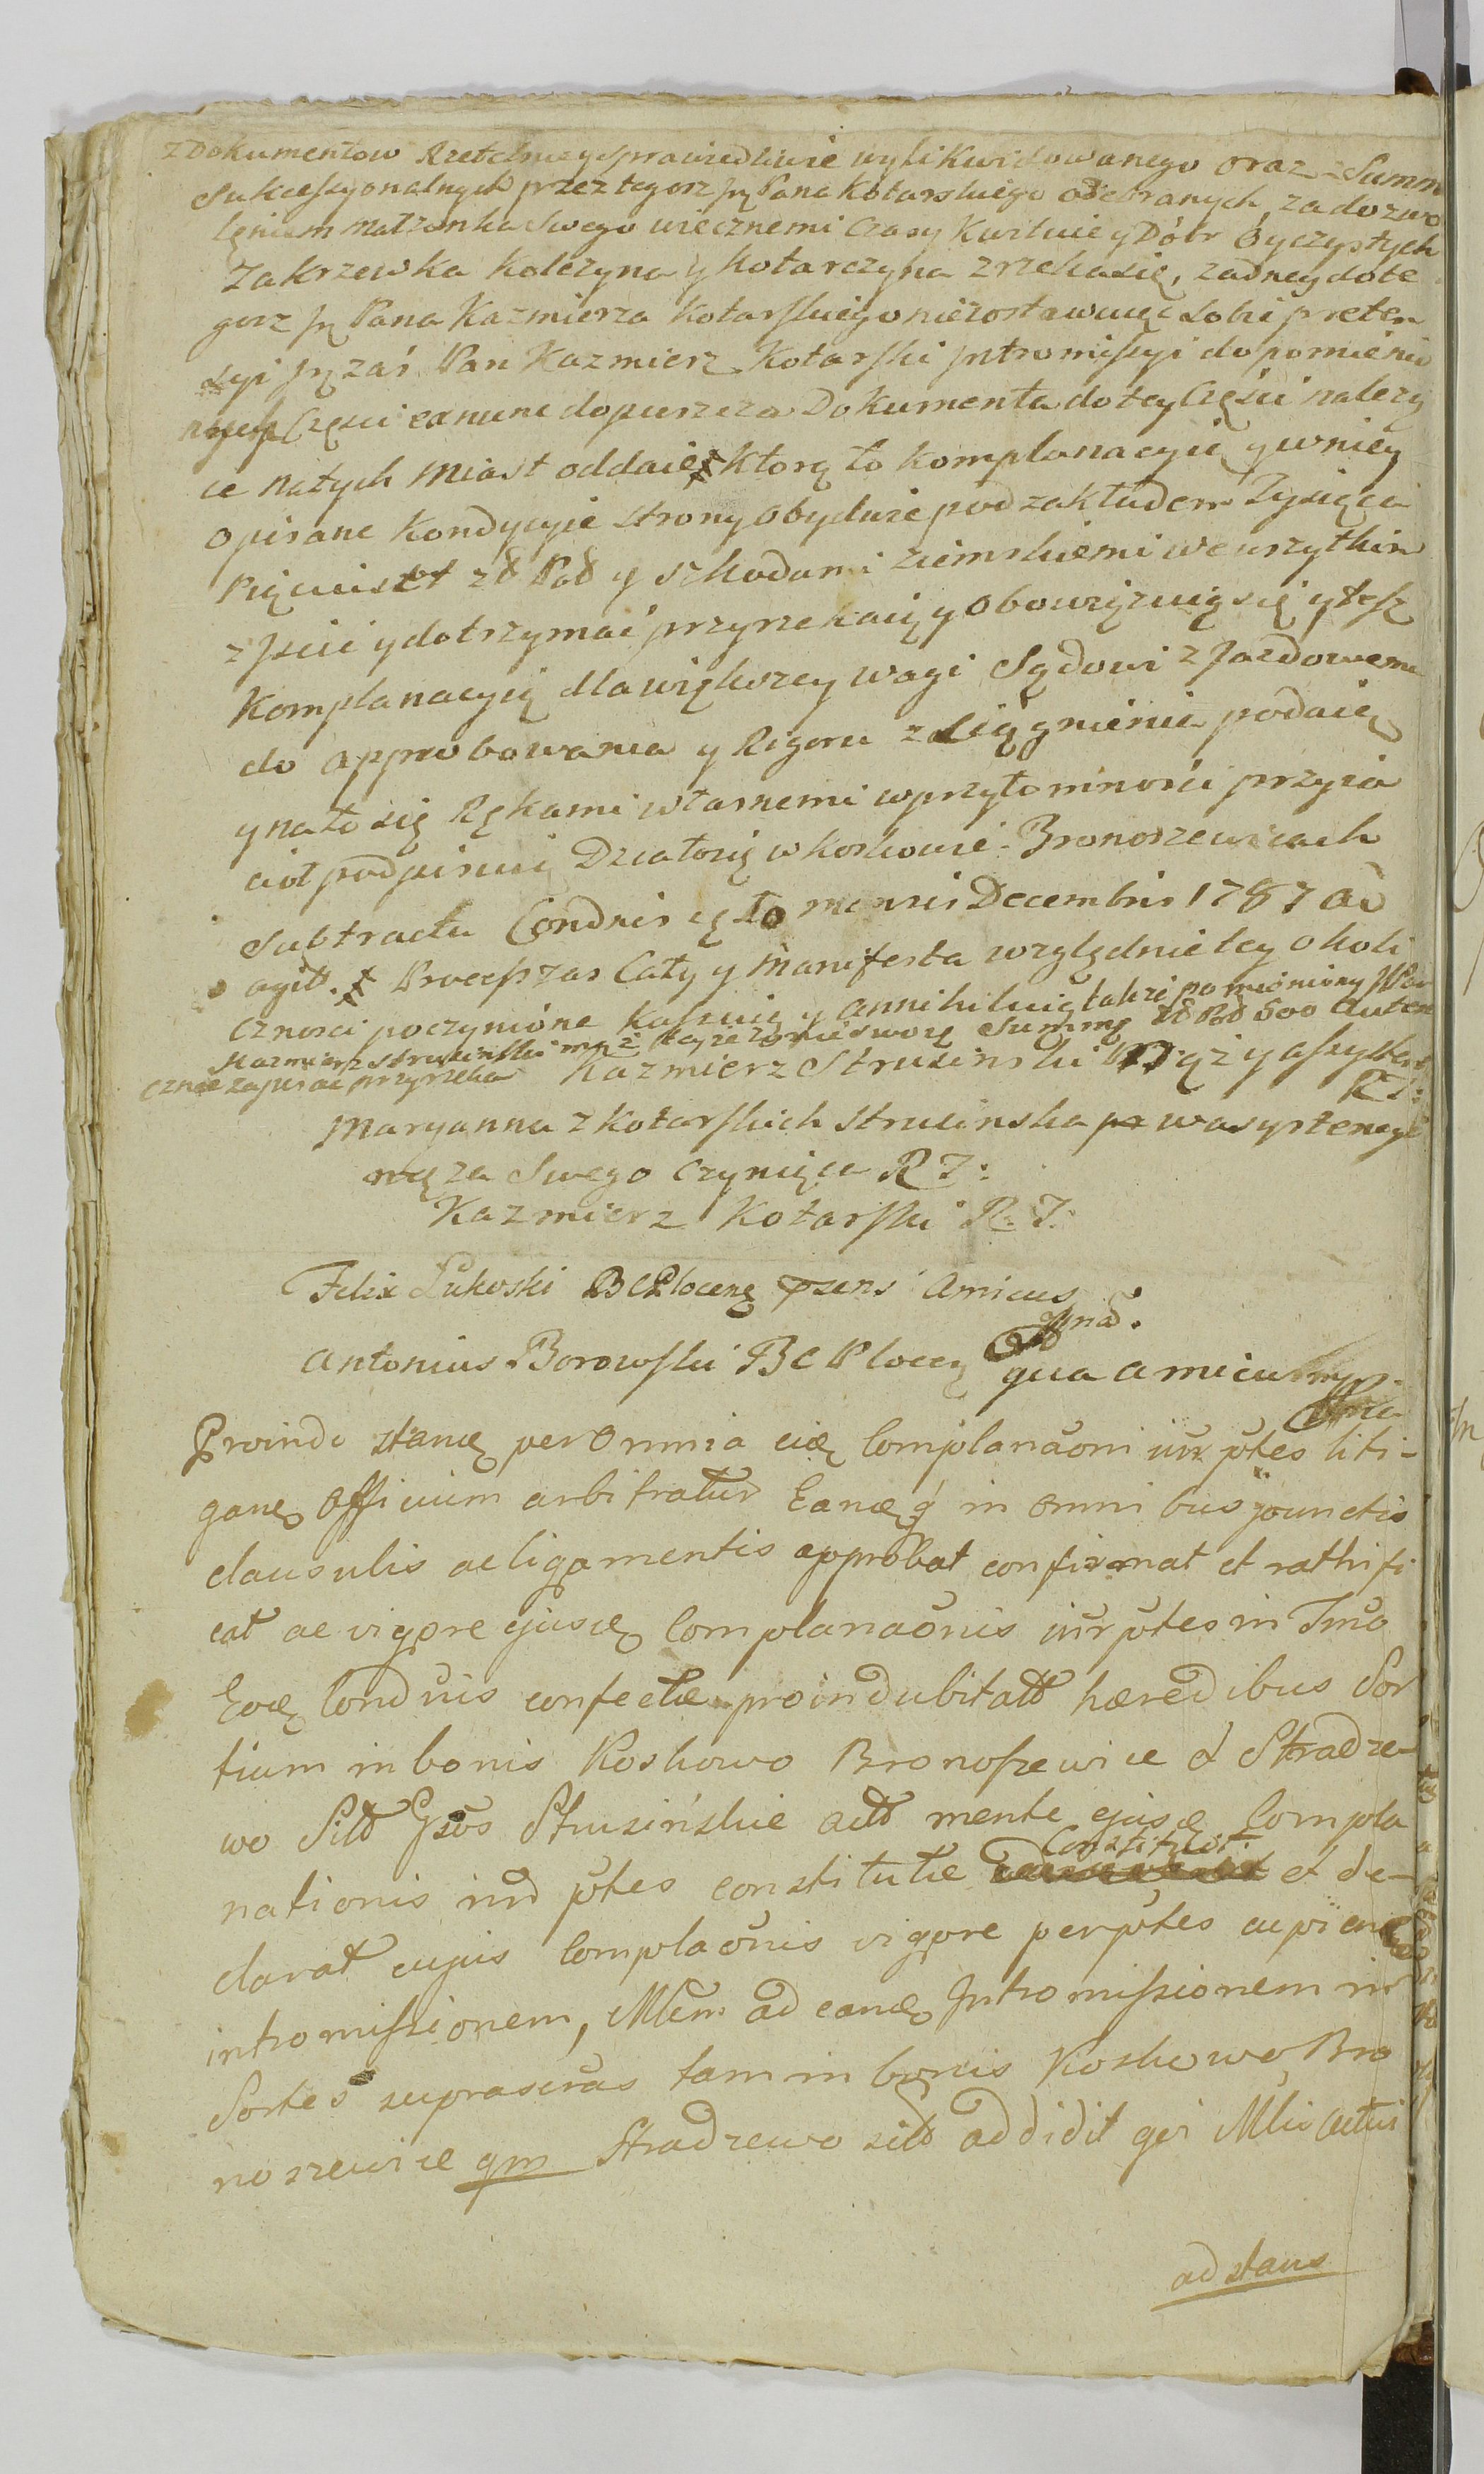 z Dokumentow Rzetelnie y Sprawiedliwie wylikwidowanego oraz Summ
Sukcessyonalnych przez tegosz JP Pana Kotarskiego odebranych, za dozwo
leniem Małzonka Swego wiecznemi Czasy Kwituie y Dóbr Oyczystych
Zakrzewka Kolczyna y Kotarczyna zrzeka się, zadney do te
gosz JP Pana Kazmierza Kotarskiego niezostawuiąc Sobie preten
syi JP zaś Pan Kazmierz Kotarski Intromissyi do pomienio
nych Części ex nunc dopuszcza Dokumenta do tey Części nalezy
ce natych miast oddaie ktorą to komplanacyią y w niey
opisane kondycyie strony obydwie pod zakładem Tysiąca
Pięciuset zł Pol y szkodami ziemskiemi we wszytkim
zJscic y dotrzymać przyrzekaią y obowięzuią się y tesz
Komplanacyią dla większey wagi Sądowi zJazdowemu
do approbowania y Rigoru zsciągnienia podaią
y na to się Rękami własnemi w przytomnosci przyia
ciół podpisuią Działo się w Koskowie Bronoszewicach
Sub tractu Condnis 10 mensis Decembris 1787 ao
agitt. Process zas Cały y Manifesta względnie tey okoli
cznosci poczynióne Kassuie y annihiluią także pomieniony Pan
Kazmierz Strusinski mąz teyze zonie swoiey Summę zł Pol 500 auten
cznie zapisać przyrzeka Kazmierz Strusinski Mąż y assystent
RS:
Maryanna z Kotarskich Strusinska w asystencyi
męza Swego Czynięca RS:
Kazmierz Kotarski R. S:
Felix Łukoski BCPlocen psens Amicus
Antonius Borowski BC Plocen qua amicus mpp
Proinde stane per Omnia eide Complanaoni iur ptes liti-
gane Officium arbitratur Eande in omnibus punctis
clausulis ac ligamentis approbat confirmat et rathifi
cat ac vigore ejusde Complanaonis iur ptes in Tmo
Eode Condnis confectae pro indubitatt haeredibus Sor
tium in bonis Koskowo Bronoszewice et Stradze-
wo Sitt Gsos Strusińskie actt mente ejusde Compla
nationis ind ptes constitutae Constituit. et de-
clarat cujus Complaonis vigore per ptes cupien
intromissionem, Mlem ad eande Intromissionem in
Sortes suprascras tam in bonis Koskowo Bro
noszewice qm Stradzewo sitt addidit qui Mlis actui
adstans